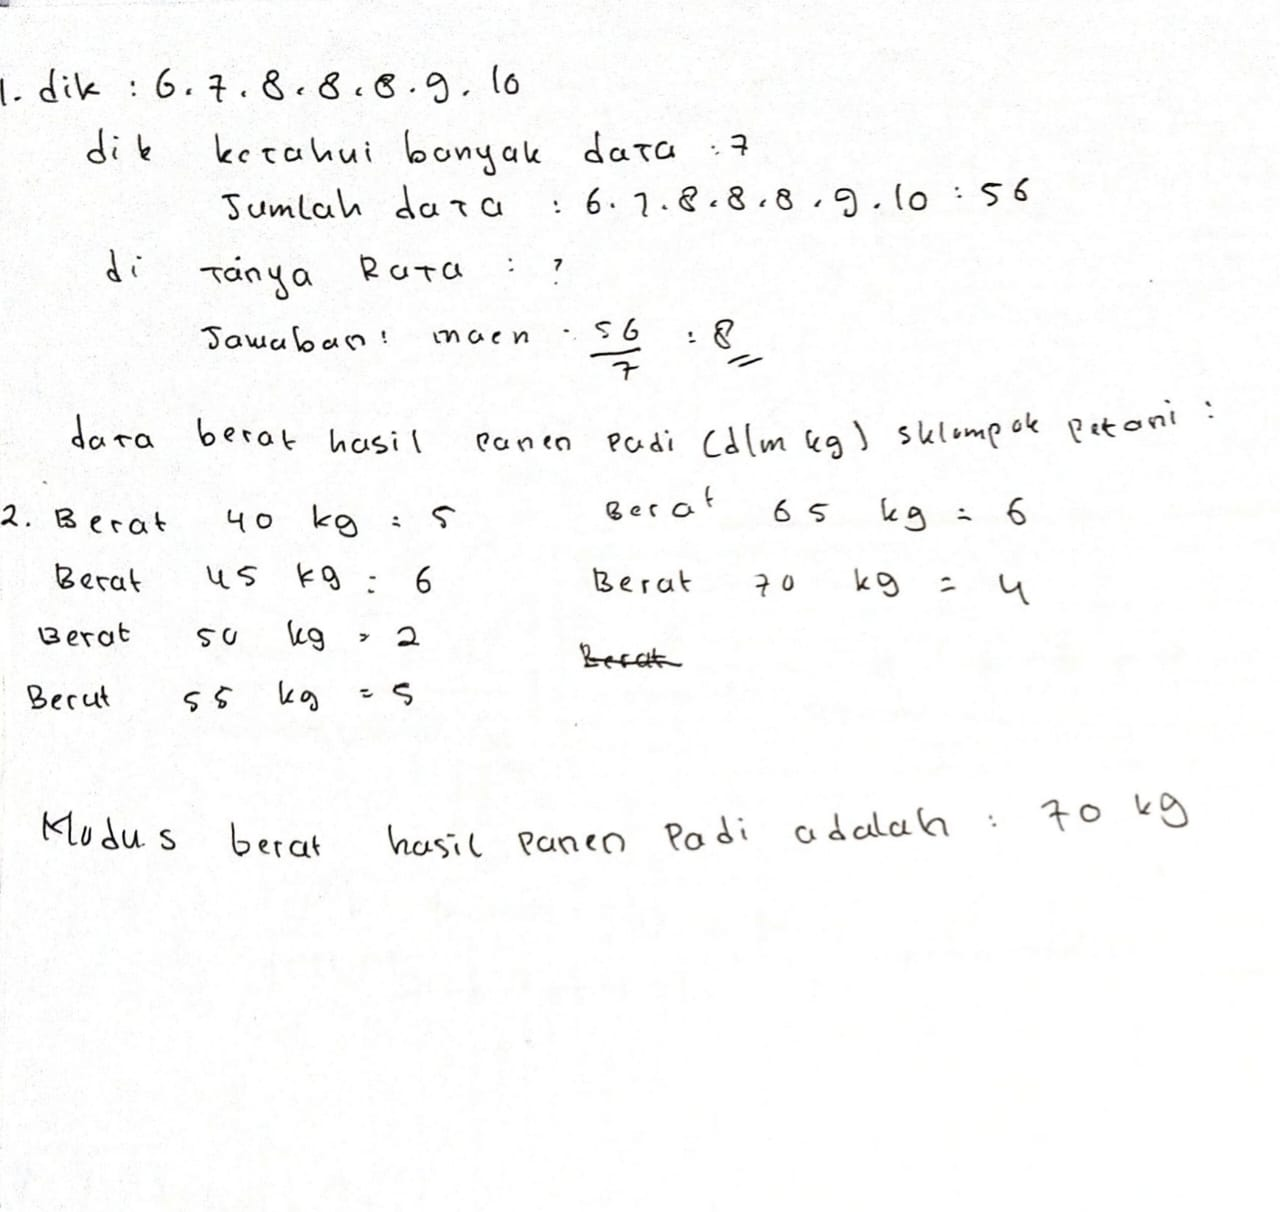 1. dik : 6.7.8.8.8.9.10
dik ketahui banyak data : 7
Jumlah data : 6.7.8.8.8.9.10 : 56
di Tanya Rata : ?
Jawaban : maen . 56/7 : 8
data berat hasil panen padi (dlm kg) sklompok petani :
2. Berat 40 kg = 5 Berat 65 kg = 6
Berat 45 kg : 6 Berat 70 kg = 4
Berat 50 kg = 2 Berat
Berat 55 kg = 5
Modus berat hasil panen Padi adalah : 70 kg